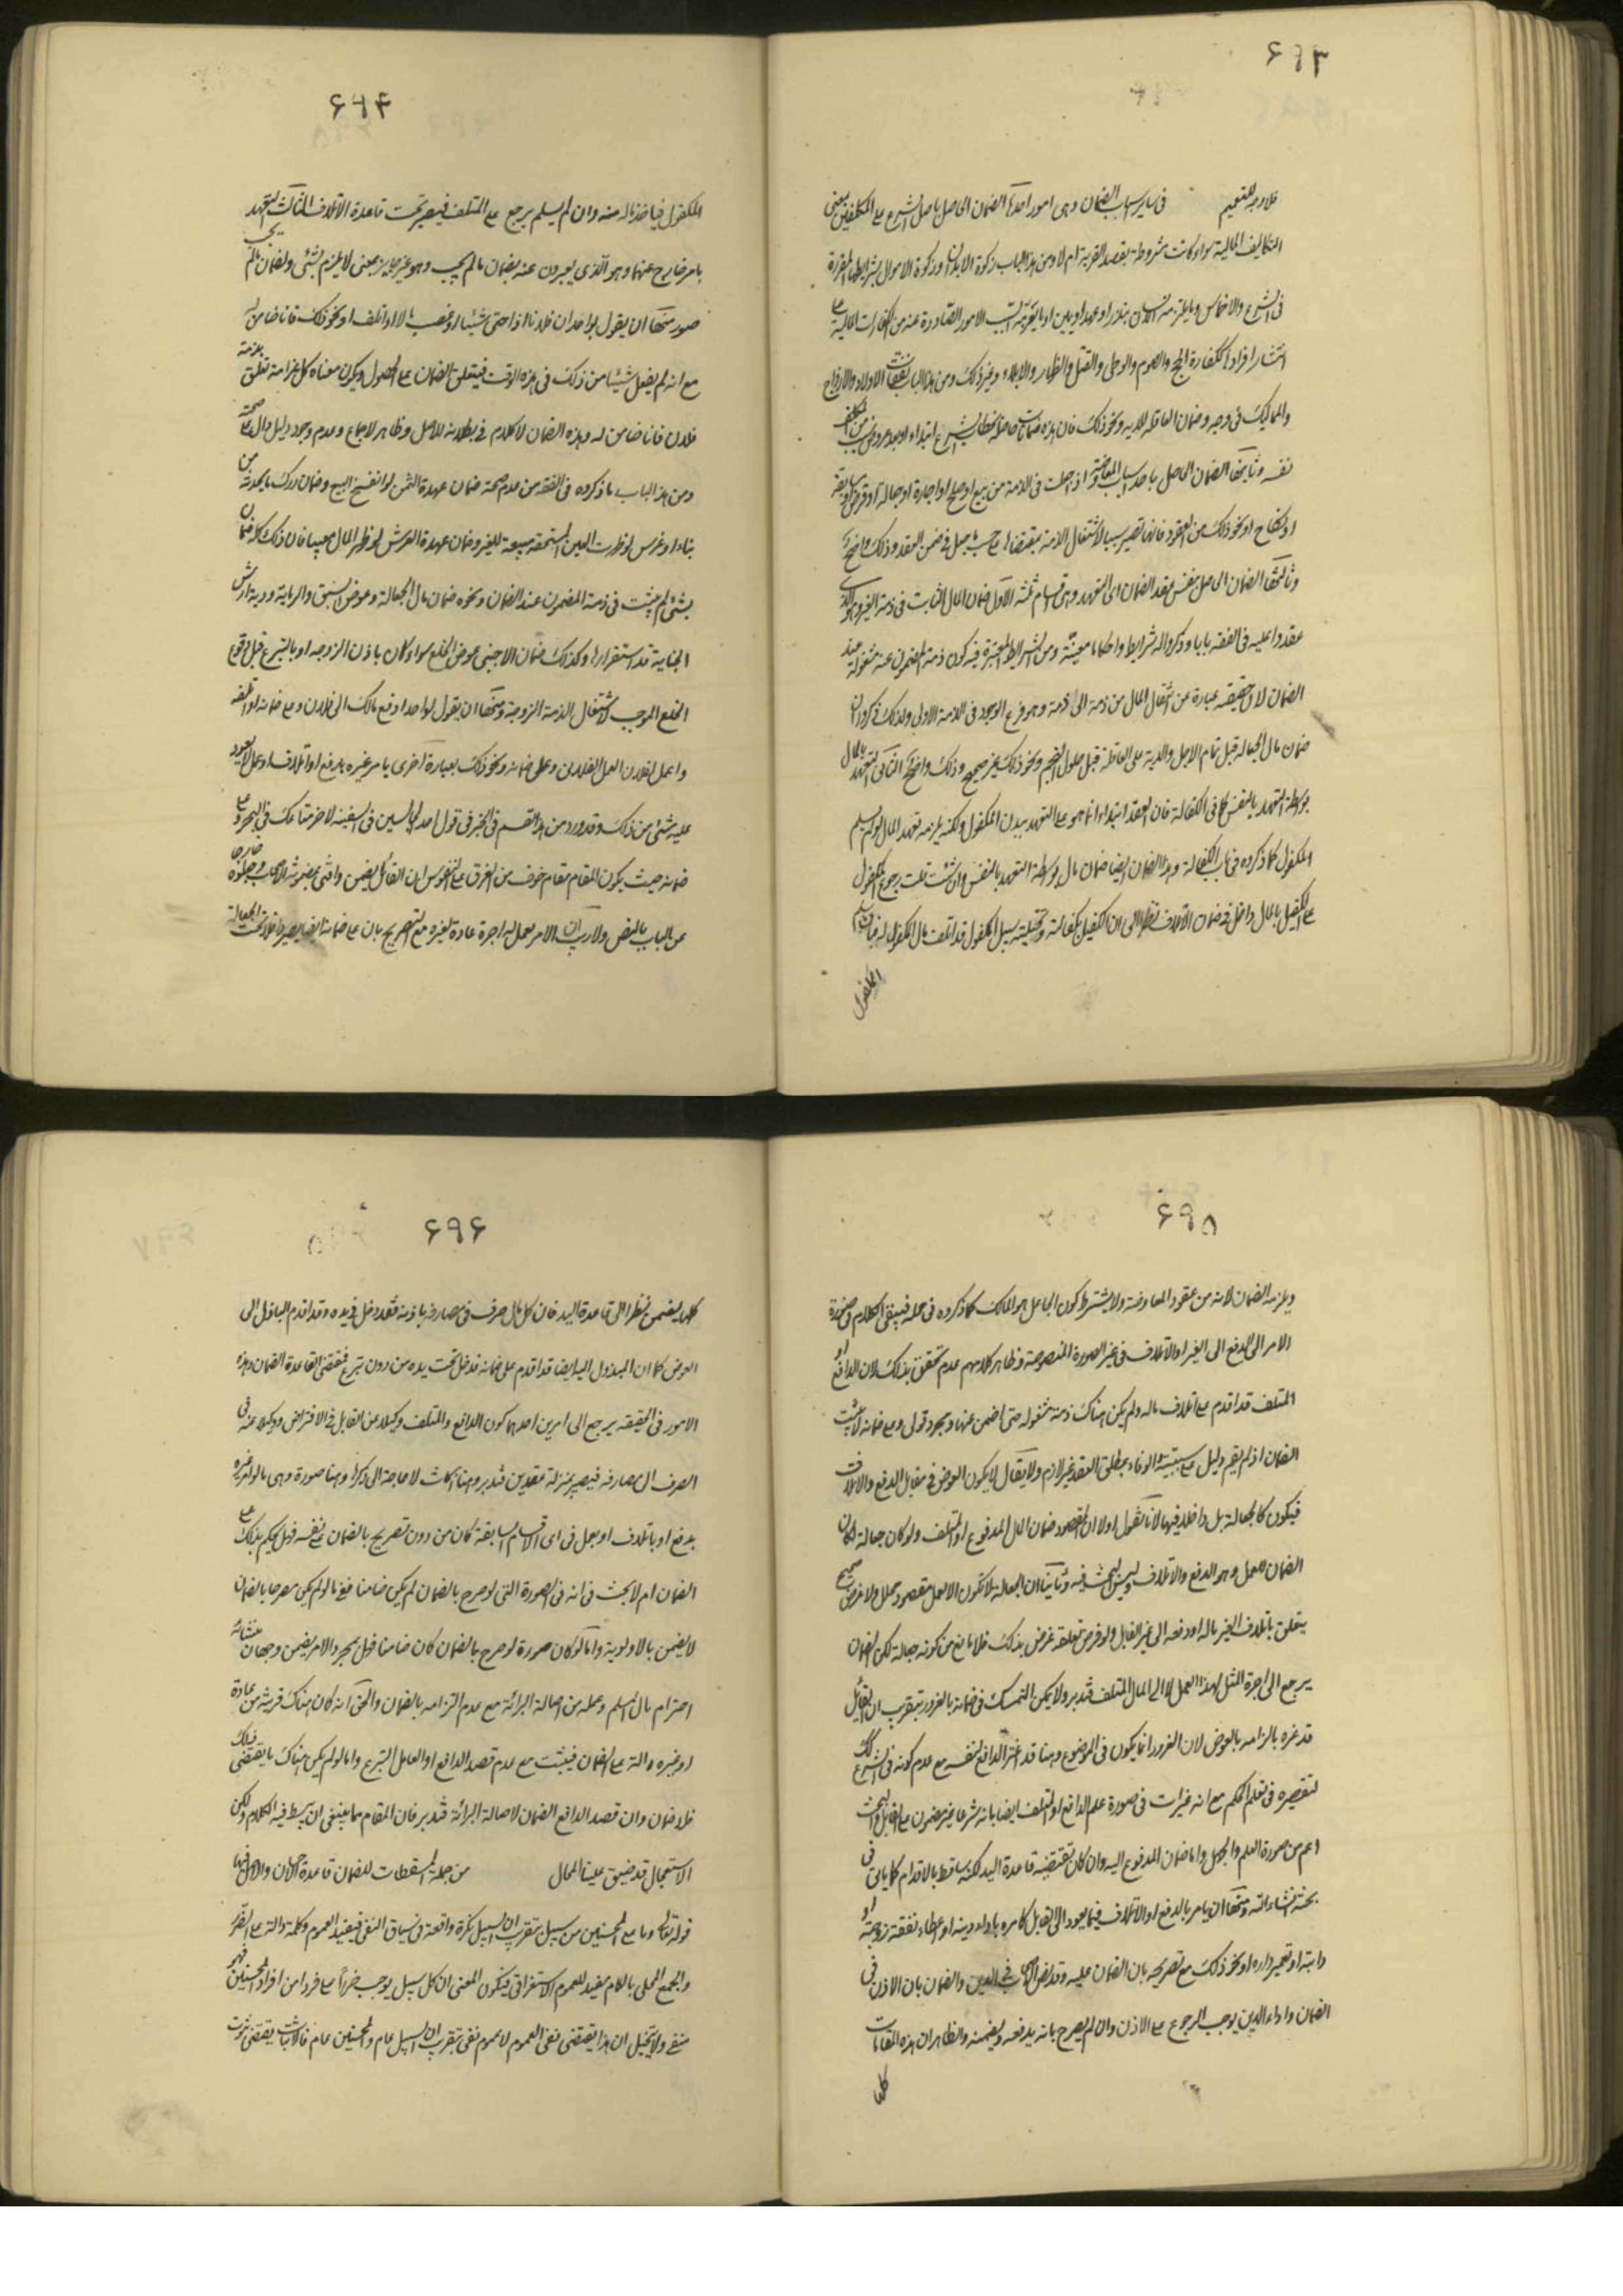 ۶۹۳
فلا وجه للتعميم في ساير اسباب الضمان وهي امور احدها الضمان الحاصل باصل الشرع على المكلفين بمعنى
التكاليف المالية سواء كانت مشروطة بقصد القربة ام لا ومن هذا الباب زكوة الابدان وزكوة الاموال بشرايطها المقررة
في الشرع والاخماس وما يلتزمه الانسان بنذر او عهد او يمين او ما يقربه بسبب الامور الصادرة عنه من الكفارات المالية على
انتشار افرادها ككفارة الحج والصوم والوطي والقتل والظهار والايلاء وغير ذلك ومن هذا الباب نفقات الاولاد والازواج
والمماليك في وجه وضمان العاقلة للدية ونحو ذلك فان هذه ضمانات حاصلة بخطاب الشرع ابتداء او بعد عروض سبب من المكلف
نفسه وثانيها الضمان الحاصل باحد اسباب المعاوضة اذا جعلت في الذمة من بيع او صلح او اجارة او جعالة او قرض او مسابقة
او نكاح او نحو ذلك من العقود فانها تصير سببا لاشتغال الذمة بمقتضاها على حسب ما جعل في ضمن العقد وذلك واضح
وثالثها الضمان الحاصل بنفس عقد الضمان اي التعهد وهي اقسام ثلثة الاول ضمان المال الثابت في ذمة الغير وهو الذي
عقدوا عليه في الفقه بابا وذكروا له شرايط واحكاما معينة ومن الشرايط المعتبرة فيه كون ذمة المضمون عنه مشغولة عند
الضمان لان حقيقته عبارة عن انتقال المال من ذمة الى ذمة وهو فرع الوجود في الذمة الاولى ولذلك ذكروا ان
ضمان مال الجعالة قبل تمام الاجل والدية على العاقلة قبل حلول النجم ونحو ذلك غير صحيح وذلك واضح الثاني التعهد بالمال
بواسطة التعهد بالنفس كما في الكفالة فان العقد ابتداء انما هو على التعهد ببدن المكفول ولكنه يلزمه تعهد المال لو لم يسلم
المكفول كما ذكروه في باب الكفالة وهذا الضمان ايضا ضمان مال بواسطة التعهد بالنفس وان شئت قلت رجوع المكفول
على الكفيل بالمال داخل في ضمان الاتلاف نظرا الى ان الكفيل بكفالته وتخليته سبيل المكفول قد اتلف مال المكفول له فاما يسلم
المكفول
۶۹۴
المكفول فياخذ ماله منه وان لم يسلم يرجع على المتلف فيصير تحت قاعدة الاتلاف الثالث التعهد
بامر خارج عنهما وهو الذي يعبرون عنه بضمان ما لم يجب وهو غير جايز بمعنى لا يلزم بشئ ولضمان ما لم يجب
صور منها ان يقول لواحد ان فلانا اذا جنى شيئا او غصب مالا او اتلف او نحو ذلك فانا ضامن له
مع انه لم يفعل شيئا من ذلك في هذه الوقت فيتعلق الضمان على الحصول ويكون معناه كل غرامة تعلق بذمة
فلان فانا ضامن له وهذه الضمان لا كلام في بطلانه للاصل وظاهر الاجماع وعدم وجود دليل دال على صحته
ومن هذا الباب ما ذكروه في الفقه من عدم صحة ضمان عهدة الثمن لو انفسخ البيع وضمان درك ما يحدثه من
بناء او غرس لو ظهرت العين المستحقة مبيعة للغير وضمان عهدة الارش لو ظهر المال معيبا فان ذلك كله ضمان
بشئ لم يثبت في ذمة المضمون عند الضمان ونحوه ضمان مال الجعالة وعوض السبق والرماية ودية ارش
الجناية قبل استقرارها وكذلك ضمان الاجنبي عوض الخلع سواء كان باذن الزوجة او بالتبرع قبل وقوع
الخلع الموجب لاشتغال الذمة الزوجة ومنها ان يقول لواحد ادفع مالك الى فلان وعلى ضمانه او اتلفه
واعمل لفلان العمل الفلاني وعلى ضمانه ونحو ذلك بعبارة اخرى يامر غيره بدفع او اتلاف او عمل لا يعود
عليه شئ من ذلك وقد ورد من هذا القسم في الخبر في قول احد الجالسين في السفينة لاخر متاعك في البحر وعلى
ضمانه حيث يكون المقام مقام خوف من الغرق على النفوس ان القائل يضمن وافتى بمضمونه الاصحاب وجعلوه خارجا
عن الباب بالنص ولا ريب ان الامر بعمل له اجرة عادة لغيره مع التصريح بان على ضمانه انه يصير داخلا تحت الجعالة
۶۹۵
ويلزمه الضمان لانه من عقود المعاوضة ولا يشترط كون الجاعل هو المالك كما ذكروه في محله فيبقى الكلام في صورة
الامر الى الدفع الى الغير او الاتلاف في غير الصورة المنصوصة وظاهر كلامهم عدم تحقق بذلك لان الدافع او
المتلف قد اقدم على اتلاف ماله ولم يكن هناك ذمة مشغولة حتى اضمن عنها ومجرد قولي وعلى ضمانه لا يثبت
الضمان اذ لم يقم دليل على سببيته والوفاء بمطلق العقد غير لازم ولا يقال لا يكون العوض في مقابل الدفع والاتلاف
فيكون كالجعالة بل داخلا فيها لانا نقول اولا ان المقصود ضمان المال المدفوع او المتلف ولو كان جعالة لكان
الضمان للعمل وهو الدفع والاتلاف وليس البحث فيه وثانيا ان الجعالة لا تكون الا لعمل مقصود محلل ولا غرض صحيح
يتعلق باتلاف الغير ماله او دفعه الى غير القابل ولو فرض تعلقه غرض بذلك فلا مانع من كونه جعالة لكن الضمان
يرجع الى اجرة المثل لهذا العمل لا الى المال المتلف فتدبر ولا يمكن التمسك في ضمانه بالغرور بتقريب ان القائل
قد غره بالزامه بالعوض لان الغرور انما يكون في الموضوع وهنا قد اغتر الدافع لنفسه مع عدم كونه في الشرع كك
لتقصيره في تعلم الحكم مع انه غير ات في صورة علم الدافع او المتلف ايضا بانه شرعا غير مضمون على القائل والبحث
اعم من صورة العلم والجهل واما ضمان المدفوع اليه وان كان تقتضيه قاعدة اليد لكنه ساقط بالاقدام كما ياتي في
بحثه انشاء الله ومنها ان يامر بالدفع او الاتلاف فيما يعود الى القابل كامره باداء دينه او اعطاء نفقة زوجته او
دابته او تعمير داره او نحو ذلك مع تصريحه بان الضمان عليه وقد نص الاصحاب في الدين والضمان بان الاذن في
الضمان واداء الدين يوجب الرجوع على الاذن وان لم يصرح بانه يدفعه ويضمنه والظاهر ان هذه المقامات
كلها
۶۹۶
كلها يضمن نظرا الى قاعدة اليد فان كل مال صرف في مصارفه باذنه فقد دخل في يده وقد اقدم الباذل الى
العوض كما ان المبذول اليه ايضا قد اقدم على ضمانه فدخل تحت يده من دون تبرع فمقتضى القاعدة الضمان وهذه
الامور في الحقيقة يرجع الى امرين احدهما كون الدافع والمتلف وكيلا عن القابل في الاقتراض ووكيلا عنه في
الصرف الى مصارفه فيصير بمنزلة عقدين فتدبر وهنا ابحاث لا حاجة الى ذكرها وهنا صورة وهي ما لو امر غيره
بدفع او باتلاف او بعمل في اي الاقسام السابقة كان من دون تصريح بالضمان على نفسه فهل يحكم بذلك على
الضمان ام لا بحث في انه في الصورة التي لو صرح بالضمان لم يكن ضامنا ففي ما لو لم يكن مصرحا بالضمان
لا يضمن بالاولوية واما لو كان صورة لو صرح بالضمان كان ضامنا فهل بمجرد الامر يضمن وجهان منشائه
احترام مال المسلم وعمله من اصالة البرائة مع عدم التزامه بالضمان والحق انه ان كان هناك قرينة من عادة
او غيره دالة على الضمان فيثبت مع عدم قصد الدافع او العامل التبرع واما لو لم يكن هناك ما يقتضي ذلك
فلا ضمان وان قصد الدافع الضمان لاصالة البرائة فتدبر فان المقام مما ينبغي ان يبسط فيه الكلام ولكن
الاستعجال قد ضيق علينا المجال من جملة المسقطات للضمان قاعدة الاحسان والاصل فيها
قوله تعالى وما على المحسنين من سبيل بتقريب ان السبيل نكرة واقعة في سياق النفي فيفيد العموم وكلمة دالة على الضرر
والجمع المحلى باللام مفيد للعموم الاستغراقي فيكون المعنى ان كل سبيل يوجب ضررا على فرد من افراد المحسنين فهو
منفي ولا يتخيل ان هذا يقتضي نفي العموم لا عموم نفي بتقريب ان السبيل عام والمحسنين عام فالاثبات يقتضي ثبوت